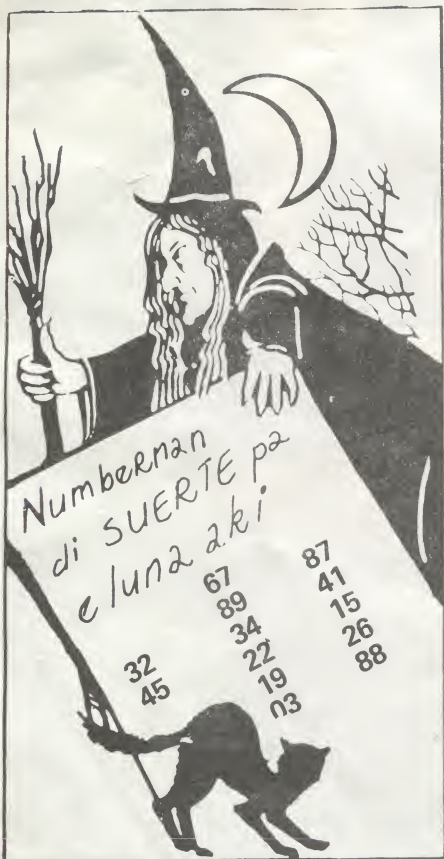 Numbernan
di SUERTE pa
e luna aki
32
45
67
89
34
22
19
03
87
41
15
26
88